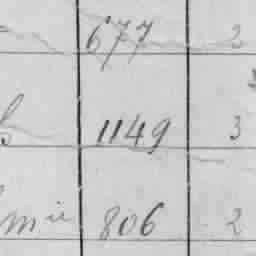 677 2
1149 3
mii 806 2